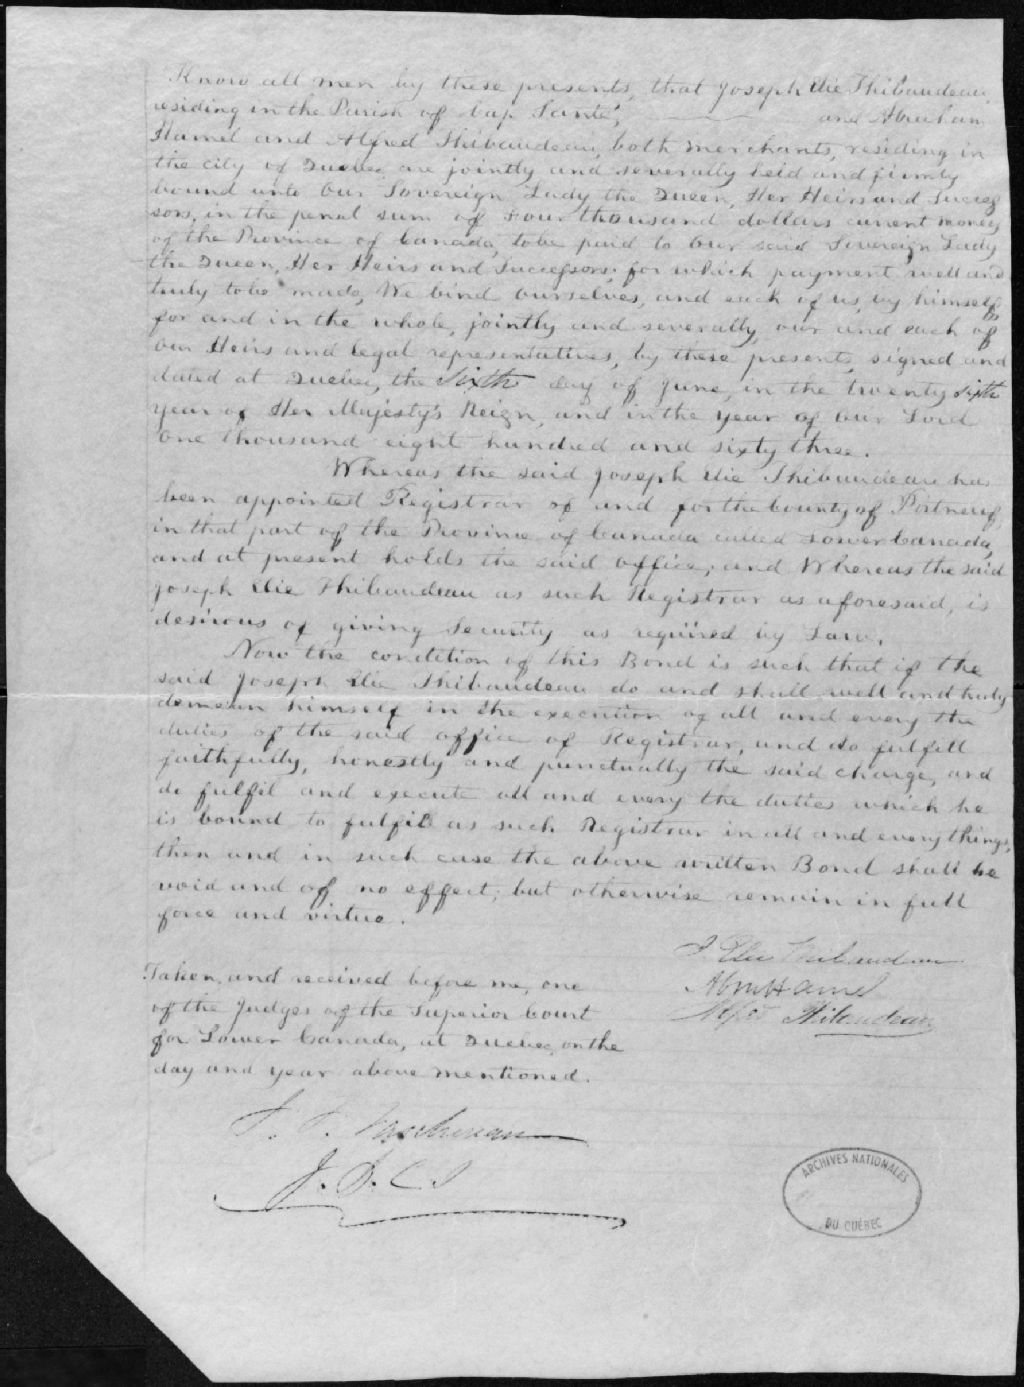 Know all men by these presents, that Joseph Elie Thibaudeau,
residing in the Parish of Cap Santé, and Abraham
Hamel and Alfred Thibaudeau, both merchants, residing in
the city of Quebec, are jointly and severally held and firmly
bound unto Our Sovereign Lady the Queen, Her Heirs and Succes
sors, in the penal sum of Four thousand dollars current money
of the Province of Canada, to be paid to Our said Sovereign Lady
the Queen, Her Heirs and Successors; for which payment, well and
truly to be made, We bind Ourselves, and each of us, by himself,
for and in the whole, jointly and severally, our and each of
our Heirs and legal representatives, by these presents, signed and
dated at Quebec, the Sixth day of June, in the twenty sixth
year of Her Majesty's Reign, and in the year of our Lord
One thousand eight hundred and sixty three.
Whereas the said Joseph Elie Thibaudeau has
been appointed Registrar of and for the County of Portneuf,
in that part of the Province of Canada called Lower Canada,
and at present holds the said office; and Whereas the said
Joseph Elie Thibaudeau as such Registrar as aforesaid, is
desirous of giving Security as required by Law.
Now the condition of this Bond is such that if the
said Joseph Elie Thibaudeau do and shall well and truly
demean himself in the execution of all and every the
duties of the said office of Registrar, and do fulfill
faithfully, honestly and punctually the said charge, and
do fulfil and execute all and every the duties which he
is bound to fulfil as such Registrar in all and every things,
then and in such case the above written Bond shall be
void and of no effect; but otherwise remain in full
force and virtue.
J. Elie Thibaudeau
Abm Hamel
Alfred Thibaudeau
Taken, and received before me, one
of the Judges of the Superior Court
for Lower Canada, at Quebec, on the
day and year above mentioned.
J. T. Taschereau
J. S. C.
ARCHIVES NATIONALES
DU QUÉBEC